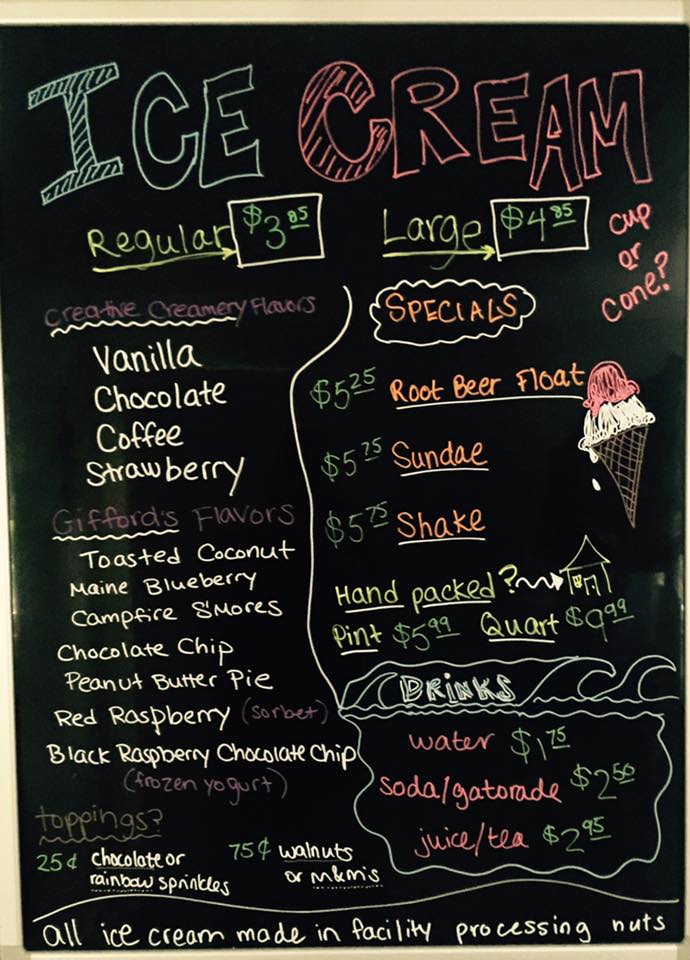 ICE CREAM
Regular $3.85
Large $4.85
cup
or
cone?
Creative Creamery Flavors
Vanilla
Chocolate
Coffee
Strawberry
Gifford's Flavors
Toasted Coconut
Maine Blueberry
Campfire S'Mores
Chocolate Chip
Peanut Butter Pie
Red Raspberry (sorbet)
Black Raspberry Chocolate Chip
(frozen yogurt)
toppings?
25¢ chocolate or
rainbow sprinkles
75¢ walnuts
or m&m's
SPECIALS
$5.25 Root Beer Float
$5.75 Sundae
$5.75 Shake
Hand packed?
Pint $5.99 Quart $9.99
DRINKS
water $1.75
soda/gatorade $2.50
juice/tea $2.95
all ice cream made in facility processing nuts